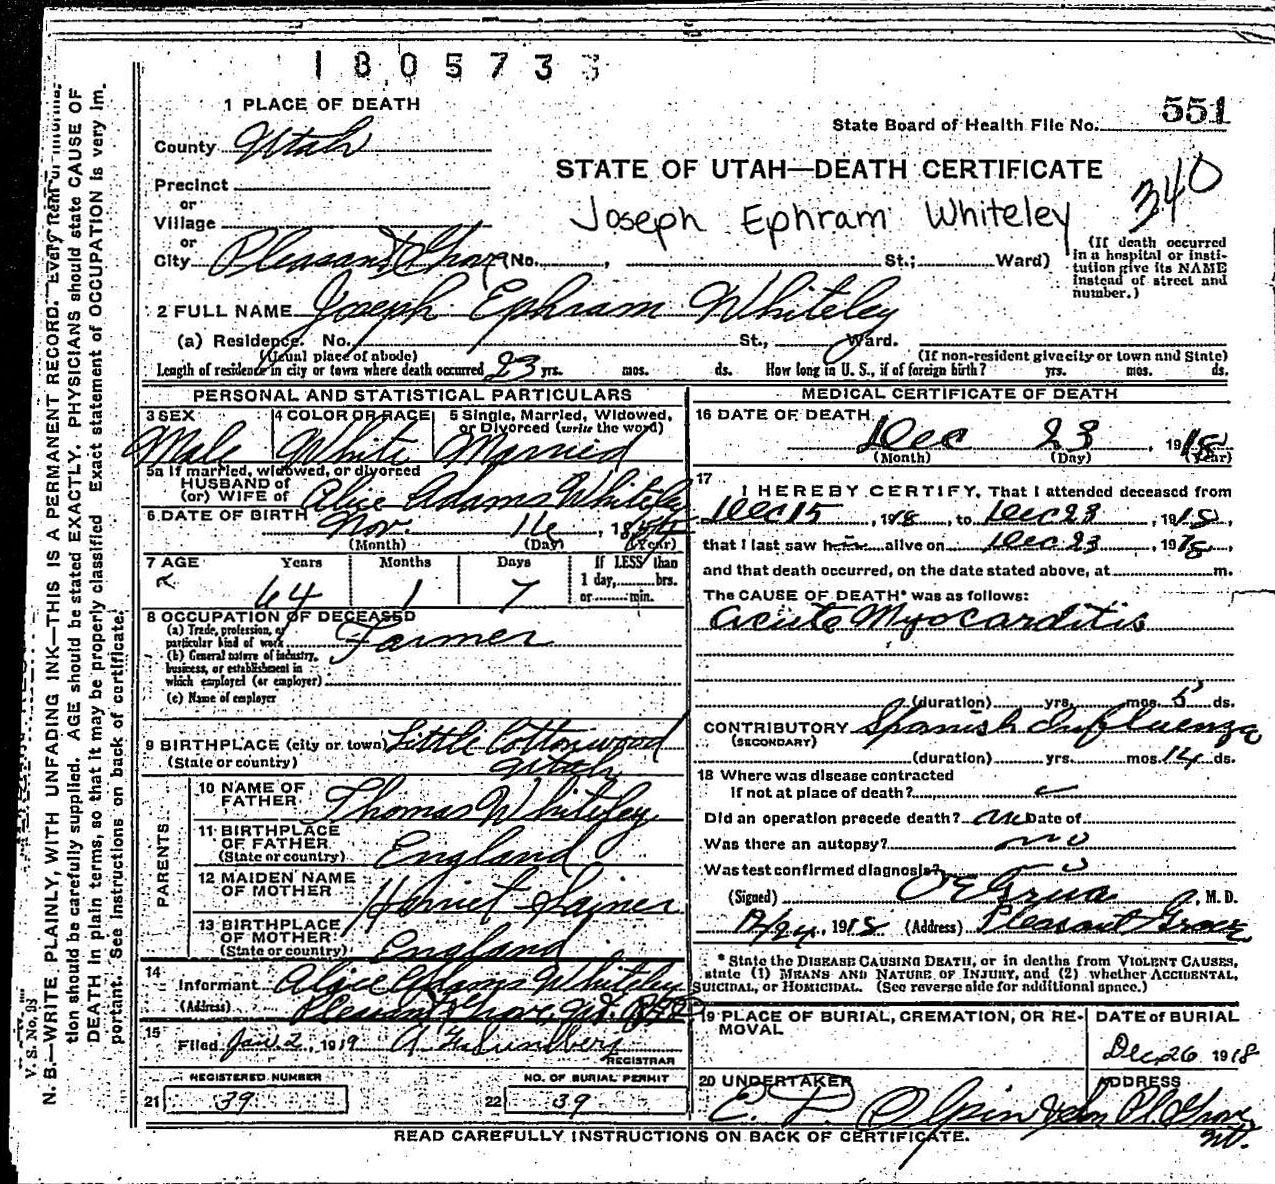 1805733
1 PLACE OF DEATH
County Utah
Precinct
or
Village
or
City Pleasant Grove (No. , St.; Ward)
State Board of Health File No. 551
STATE OF UTAH—DEATH CERTIFICATE
340
Joseph Ephram Whiteley
(If death occurred
in a hospital or insti-
tution give its NAME
instead of street and
number.)
2 FULL NAME Joseph Ephram Whiteley
(a) Residence. No. St., Ward.
(Usual place of abode) (If non-resident give city or town and State)
Length of residence in city or town where death occurred 23 yrs. mos. ds. How long in U. S., if of foreign birth? yrs. mos. ds.
PERSONAL AND STATISTICAL PARTICULARS
3 SEX 4 COLOR OR RACE 5 Single, Married, Widowed,
or Divorced (write the word)
Male White Married
5a If married, widowed, or divorced
HUSBAND of
(or) WIFE of Alice Adams Whiteley
6 DATE OF BIRTH Nov. 16, 18
(Month) (Day) (Year)
7 AGE Years Months Days If LESS than
1 day, hrs.
or min.
64 1 7
8 OCCUPATION OF DECEASED
(a) Trade, profession, or
particular kind of work Farmer
(b) General nature of industry,
business, or establishment in
which employed (or employer)
(c) Name of employer
9 BIRTHPLACE (city or town) Little Cottonwood
(State or country) Utah
PARENTS
10 NAME OF
FATHER Thomas Whiteley
11 BIRTHPLACE
OF FATHER
(State or country) England
12 MAIDEN NAME
OF MOTHER Harriet
13 BIRTHPLACE
OF MOTHER
(State or country) England
14
Informant Alice Adams Whiteley
(Address) Pleasant Grove, Ut.
15
Filed Jan. 2, 1919
REGISTRAR
REGISTERED NUMBER NO. OF BURIAL PERMIT
21 39 22 39
MEDICAL CERTIFICATE OF DEATH
16 DATE OF DEATH
Dec 23, 1918
(Month) (Day) (Year)
17
I HEREBY CERTIFY, That I attended deceased from
Dec 15, 1918, to Dec 23, 1918,
that I last saw him alive on Dec 23, 1918,
and that death occurred, on the date stated above, at m.
The CAUSE OF DEATH* was as follows:
Acute Myocarditis
(duration) yrs. mos. 5 ds.
CONTRIBUTORY Spanish Influenza
(SECONDARY)
(duration) yrs. mos. 14 ds.
18 Where was disease contracted
If not at place of death?
Did an operation precede death? no Date of
Was there an autopsy? no
Was test confirmed diagnosis? no
(Signed) O E Grua, M. D.
12/24, 1918 (Address) Pleasant Grove
* State the DISEASE CAUSING DEATH, or in deaths from VIOLENT CAUSES,
state (1) MEANS AND NATURE OF INJURY, and (2) whether ACCIDENTAL,
SUICIDAL, or HOMICIDAL. (See reverse side for additional space.)
19 PLACE OF BURIAL, CREMATION, OR RE-
MOVAL
DATE of BURIAL
Dec 26 1918
20 UNDERTAKER ADDRESS
E. D. Olpin Pl. Grove
Ut.
READ CAREFULLY INSTRUCTIONS ON BACK OF CERTIFICATE.
V. S. No. 98
N. B.—WRITE PLAINLY, WITH UNFADING INK—THIS IS A PERMANENT RECORD. Every item of informa-
tion should be carefully supplied. AGE should be stated EXACTLY. PHYSICIANS should state CAUSE OF
DEATH in plain terms, so that it may be properly classified. Exact statement of OCCUPATION is very im-
portant. See instructions on back of certificate.